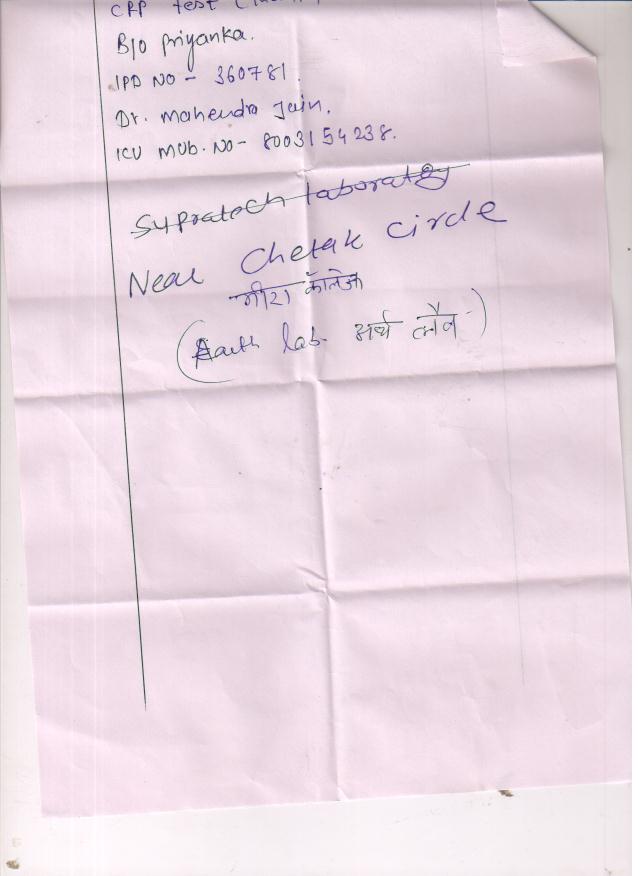 CRP test
B/o Priyanka.
IPD NO - 360781.
Dr. Mahendra Jain.
ICU Mob. No- 8003154238.
Supratech laboratory
Near Chetak Circle
मीरा कॉलेज
(Aarth lab. अर्थ लैब)